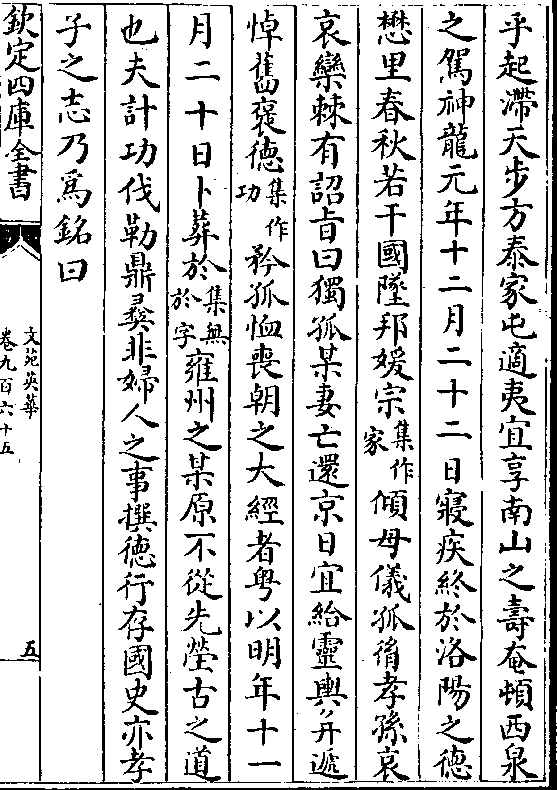 乎起滯天步方泰家屯適夷宜享南山之壽奄頓西泉
之駕神龍元年十二月二十二日寢疾終於洛陽之德
懋里春秋若干國墜邦媛宗集作家傾母儀孤𦙍孝孫哀
哀欒棘有詔旨曰獨孤某妻亡還京日宜給靈輿并遞
悼舊褒德集作功矜孤恤喪朝之大經者粤以明年十一
月二十日卜葬於集無於字雍州之某原不從先塋古之道
也夫計功伐勒鼎彛非婦人之事撰德行存國史亦孝
子之志乃爲銘曰
欽定四庫全書
文苑英華
卷九百六十五
五